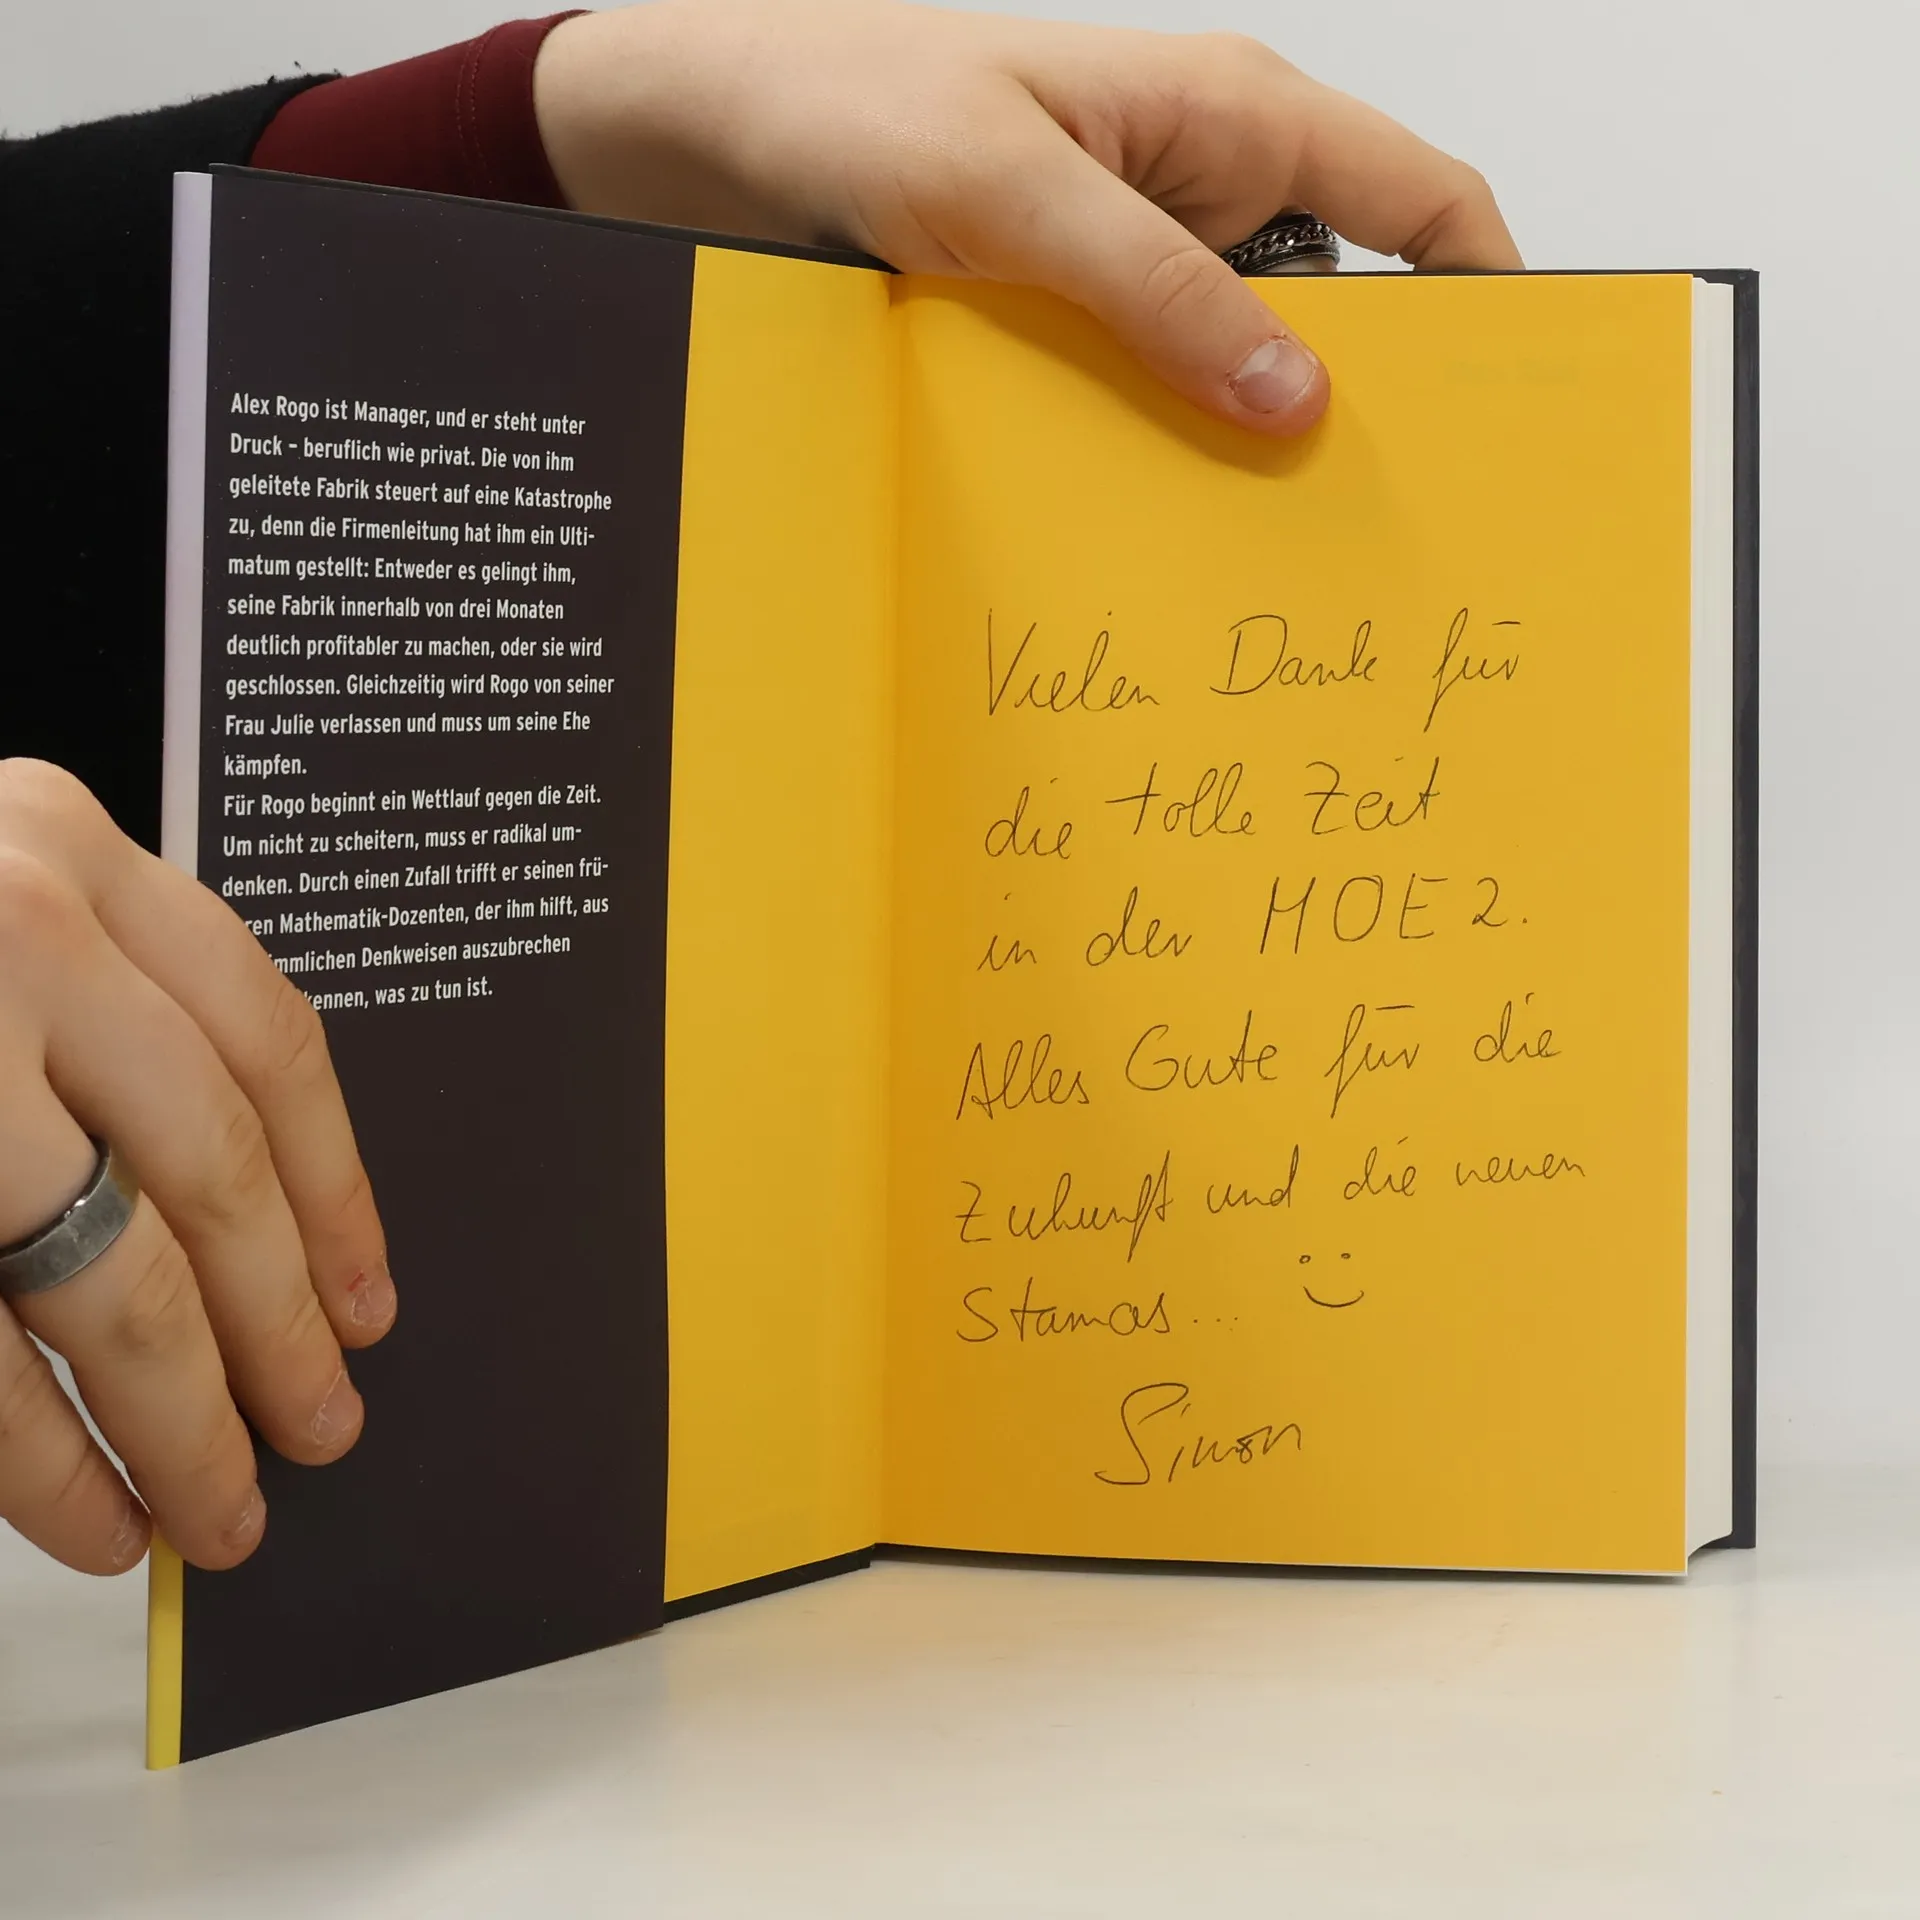 Alex Rogo ist Manager, und er steht unter
Druck – beruflich wie privat. Die von ihm
geleitete Fabrik steuert auf eine Katastrophe
zu, denn die Firmenleitung hat ihm ein Ulti-
matum gestellt: Entweder es gelingt ihm,
seine Fabrik innerhalb von drei Monaten
deutlich profitabler zu machen, oder sie wird
geschlossen. Gleichzeitig wird Rogo von seiner
Frau Julie verlassen und muss um seine Ehe
kämpfen.
Für Rogo beginnt ein Wettlauf gegen die Zeit.
Um nicht zu scheitern, muss er radikal um-
denken. Durch einen Zufall trifft er seinen frü-
ren Mathematik-Dozenten, der ihm hilft, aus
mmlichen Denkweisen auszubrechen
kennen, was zu tun ist.
Vielen Dank für
die tolle Zeit
in der MOE 2.
Alles Gute für die
Zukunft und die neuen
Stamos... :)
Simon